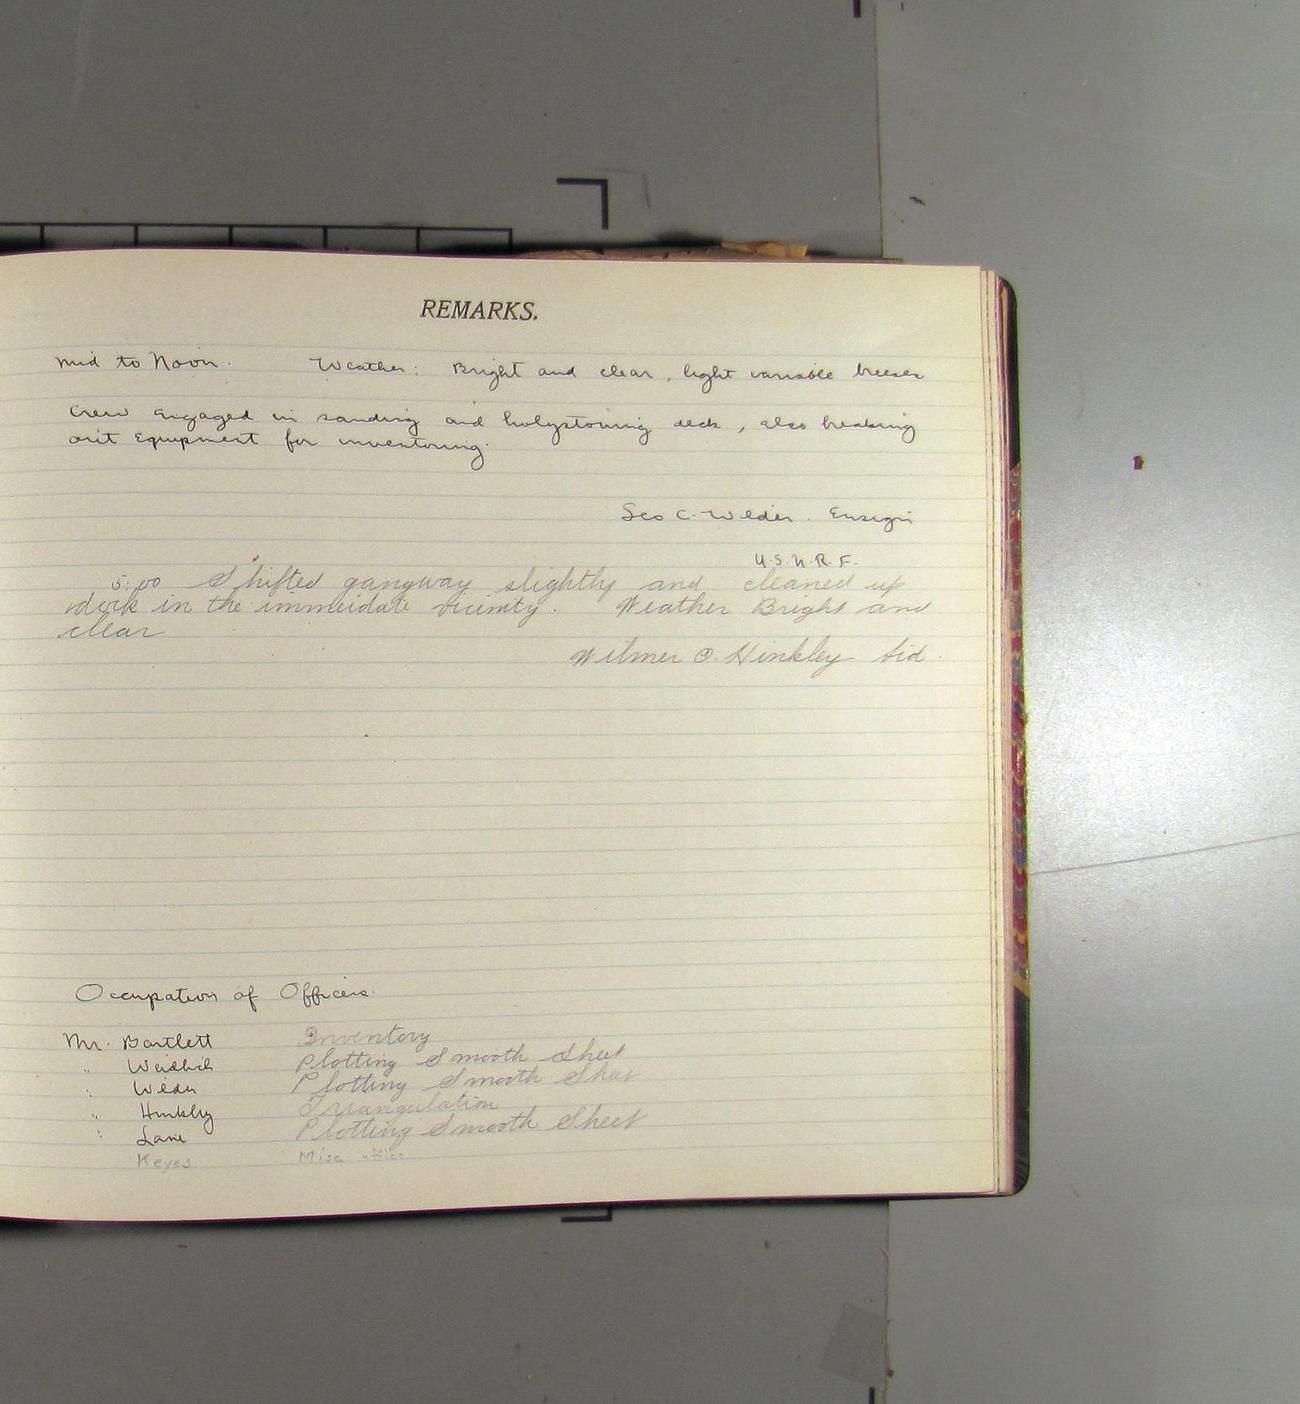 REMARKS.
Mid to Noon. Weather: Bright and clear, light variable breeze
Crew engaged in sanding and holystoning deck, also breaking
out equipment for inventoring.
Geo C. Wilder. Ensign
U.S.N.R.F.
5:00 Shifted gangway slightly and cleaned up
dock in the immeidate vicinity. Weather Bright and
clear
Wilmer O. Hinkley Aid.
Occupation of Officers.
Mr. Bartlett Inventory
" Plotting Smooth Sheet
" Wilder Plotting Smooth Sheet
" Hinkley Triangulation
" Lane Plotting Smooth Sheet
Keyes Misc office